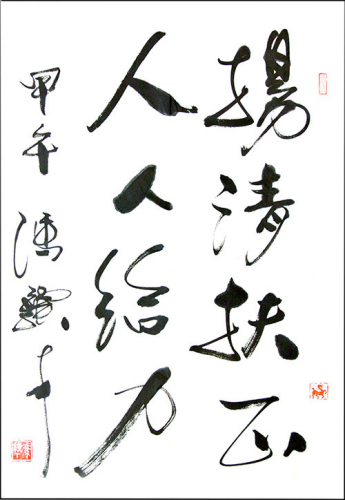 揚清扶正
人人給力
甲午